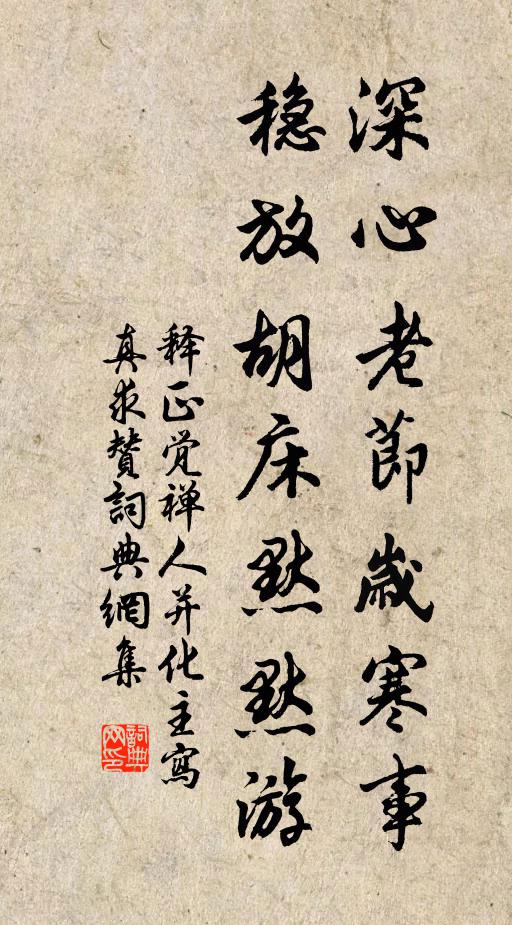 深心老節歲寒事
稳放胡床默默游
释正觉禅人并化主寫
真求赞詞典網集
詞典网印